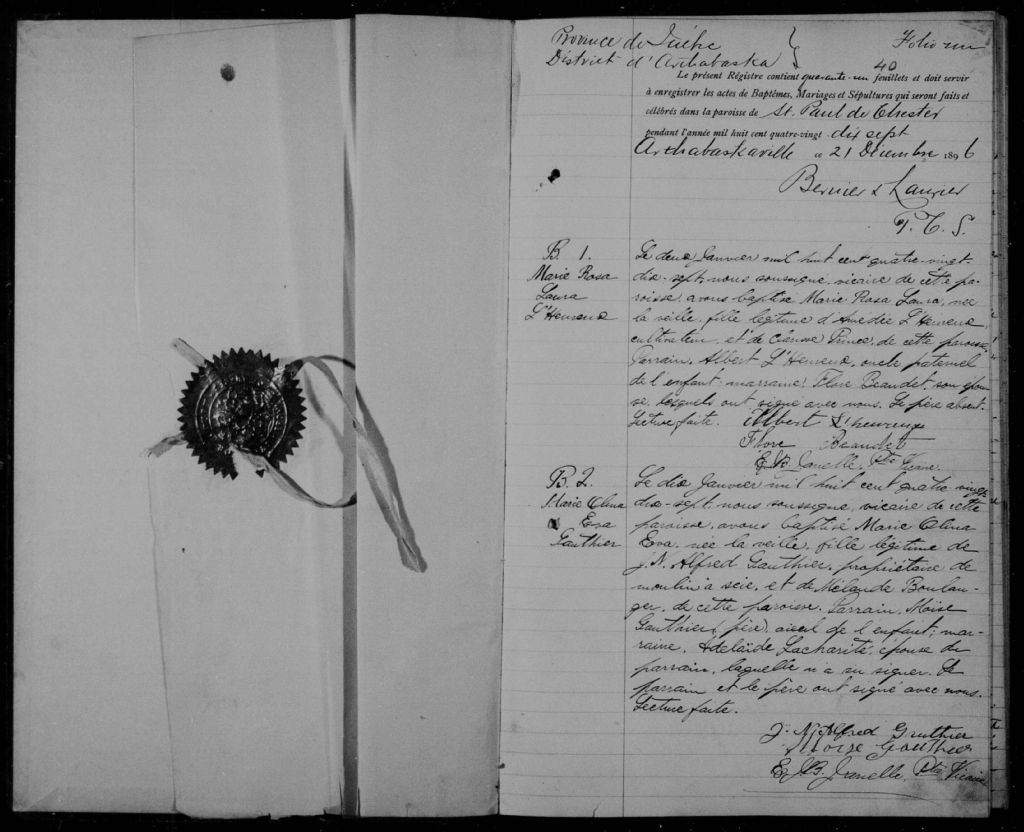 Province de Québec
District d'Arthabaska
Folio un
40
Le présent Régistre contient quarante-un feuillets et doit servir
à enregistrer les actes de Baptêmes, Mariages et Sépultures qui seront faits et
célébrés dans la paroisse de St. Paul de Chester
pendant l'année mil huit cent quatre-vingt dix sept
Arthabaskaville ce 21 Décembre 1896
Bernier & Laurier
P. C. S.
B. 1.
Marie Rosa
Laura
L'Heureux
Le deux Janvier mil huit cent quatre-vingt-
dix-sept, nous soussigné, vicaire de cette pa-
roisse, avons baptisé Marie Rosa Laura, née
la veille, fille légitime d'Amédée L'Heureux,
cultivateur, et de Clarisse Prince, de cette paroisse.
Parrain, Albert L'Heureux, oncle paternel
de l'enfant; marraine, Flore Beaudet, son épou-
se, lesquels ont signé avec nous. Le père absent.
Lecture faite. Albert L'heureux
Flore Beaudet
E. J. B. Janelle, Ptre Vicaire
B. 2.
Marie Elina
Eva
Gauthier
Le dix Janvier mil huit cent quatre-vingt
dix-sept, nous soussigné, vicaire de cette
paroisse, avons baptisé Marie Elina
Eva, née la veille, fille légitime de
J. N. Alfred Gauthier, propriétaire de
moulin à scie, et de Mélande Boulan-
ger, de cette paroisse. Parrain, Moïse
Gauthier, père, aïeul de l'enfant; mar-
raine, Adelaïde Lacharité, épouse du
parrain, laquelle n'a su signer. Le
parrain et le père ont signé avec nous.
Lecture faite.
J. N. Alfred Gauthier
Moïse Gauthier
E. J. B. Janelle, Ptre Vicaire